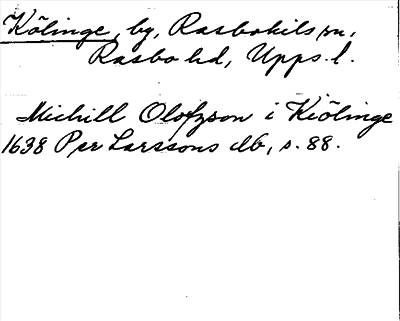 Kölinge, by, Rasbokils sn,
Rasbo hd, Upps. l.
Michill Olofzson i Kiölinge
1638 Per Larssons db, s. 88.